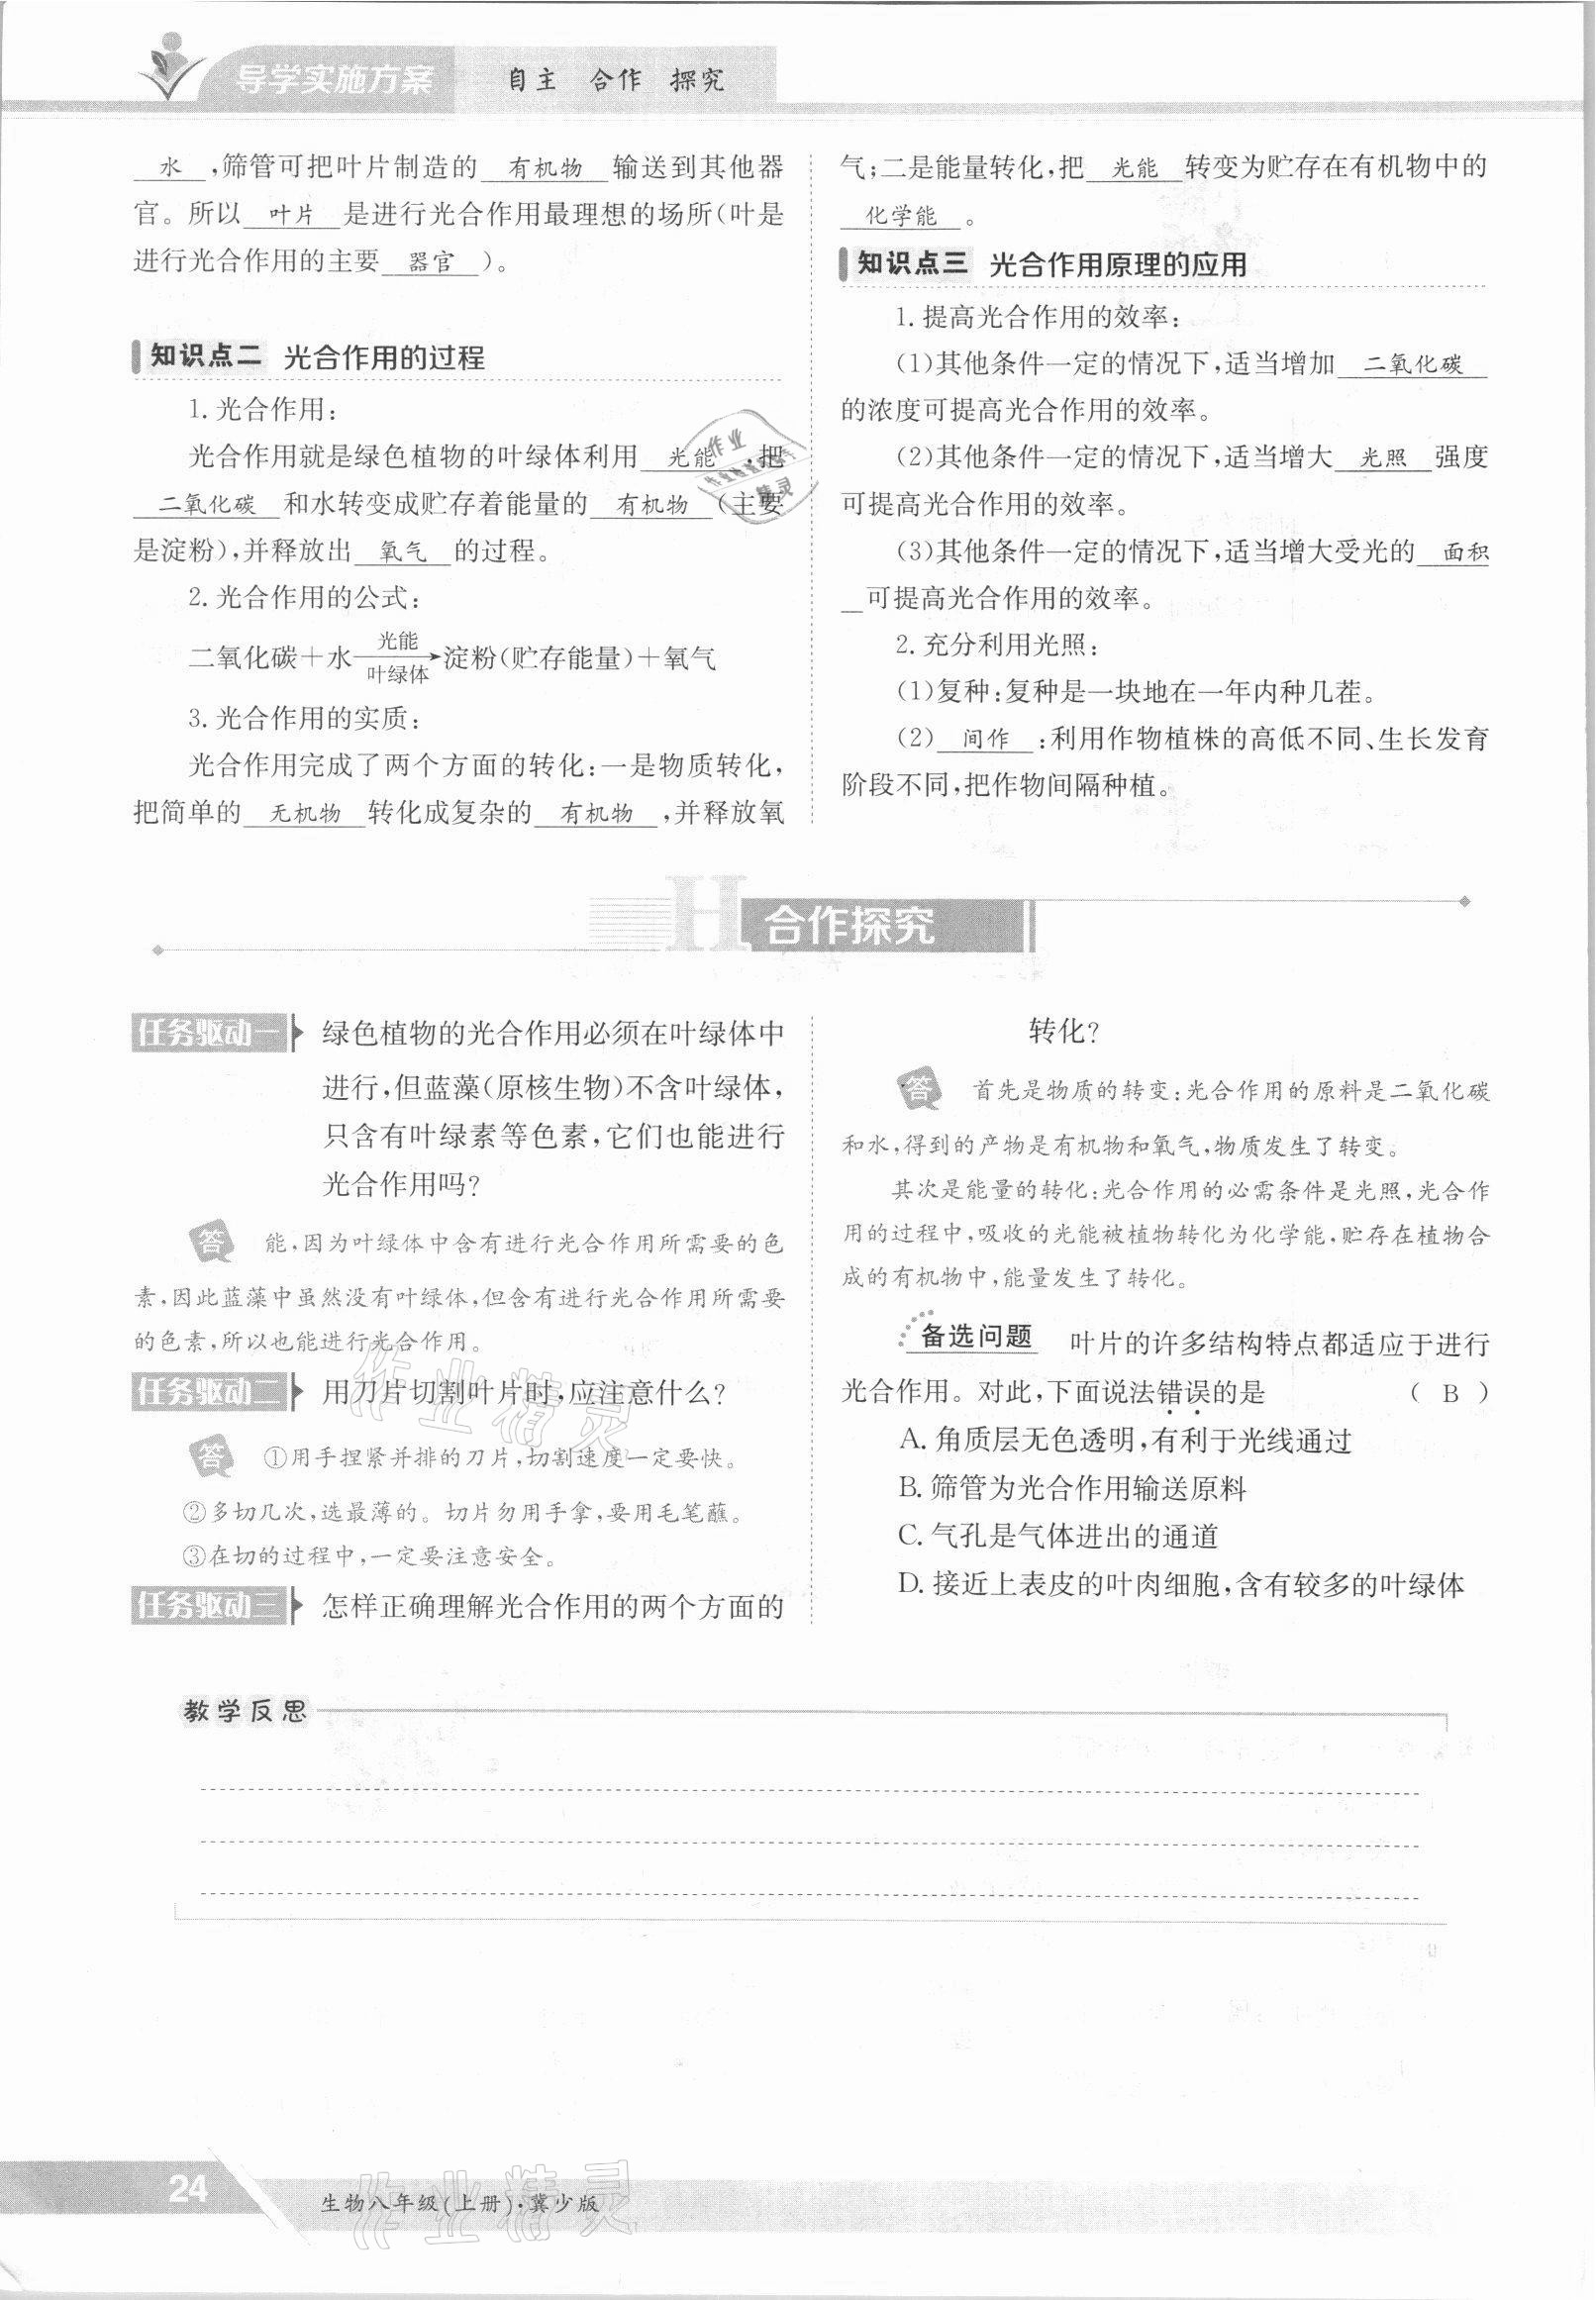 导学实施方案 自主 合作 探究
水,筛管可把叶片制造的 有机物 输送到其他器
官。所以 叶片 是进行光合作用最理想的场所(叶是
进行光合作用的主要 器官 )。
知识点二 光合作用的过程
1. 光合作用:
光合作用就是绿色植物的叶绿体利用 光能 ,把
二氧化碳 和水转变成贮存着能量的 有机物 (主要
是淀粉),并释放出 氧气 的过程。
2. 光合作用的公式:
二氧化碳+水 光能 叶绿体 →淀粉(贮存能量)+氧气
3. 光合作用的实质:
光合作用完成了两个方面的转化:一是物质转化,
把简单的 无机物 转化成复杂的 有机物 ,并释放氧
气;二是能量转化,把 光能 转变为贮存在有机物中的
化学能 。
知识点三 光合作用原理的应用
1. 提高光合作用的效率:
(1)其他条件一定的情况下,适当增加 二氧化碳
的浓度可提高光合作用的效率。
(2)其他条件一定的情况下,适当增大 光照 强度
可提高光合作用的效率。
(3)其他条件一定的情况下,适当增大受光的 面积
可提高光合作用的效率。
2. 充分利用光照:
(1)复种:复种是一块地在一年内种几茬。
(2) 间作 :利用作物植株的高低不同、生长发育
阶段不同,把作物间隔种植。
H 合作探究
任务驱动一 绿色植物的光合作用必须在叶绿体中
进行,但蓝藻(原核生物)不含叶绿体,
只含有叶绿素等色素,它们也能进行
光合作用吗?
答 能,因为叶绿体中含有进行光合作用所需要的色
素,因此蓝藻中虽然没有叶绿体,但含有进行光合作用所需要
的色素,所以也能进行光合作用。
任务驱动二 用刀片切割叶片时,应注意什么?
答 ①用手捏紧并排的刀片,切割速度一定要快。
②多切几次,选最薄的。切片勿用手拿,要用毛笔蘸。
③在切的过程中,一定要注意安全。
任务驱动三 怎样正确理解光合作用的两个方面的
转化?
答 首先是物质的转变:光合作用的原料是二氧化碳
和水,得到的产物是有机物和氧气,物质发生了转变。
其次是能量的转化:光合作用的必需条件是光照,光合作
用的过程中,吸收的光能被植物转化为化学能,贮存在植物合
成的有机物中,能量发生了转化。
备选问题 叶片的许多结构特点都适应于进行
光合作用。对此,下面说法错误的是 ( B )
A. 角质层无色透明,有利于光线通过
B. 筛管为光合作用输送原料
C. 气孔是气体进出的通道
D. 接近上表皮的叶肉细胞,含有较多的叶绿体
教学反思
24
生物八年级(上册)·冀少版
作业精灵
作业精灵
作业
精灵